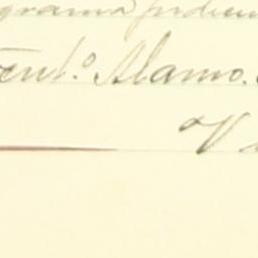 grama pidien
Fent.º Alamo.
V